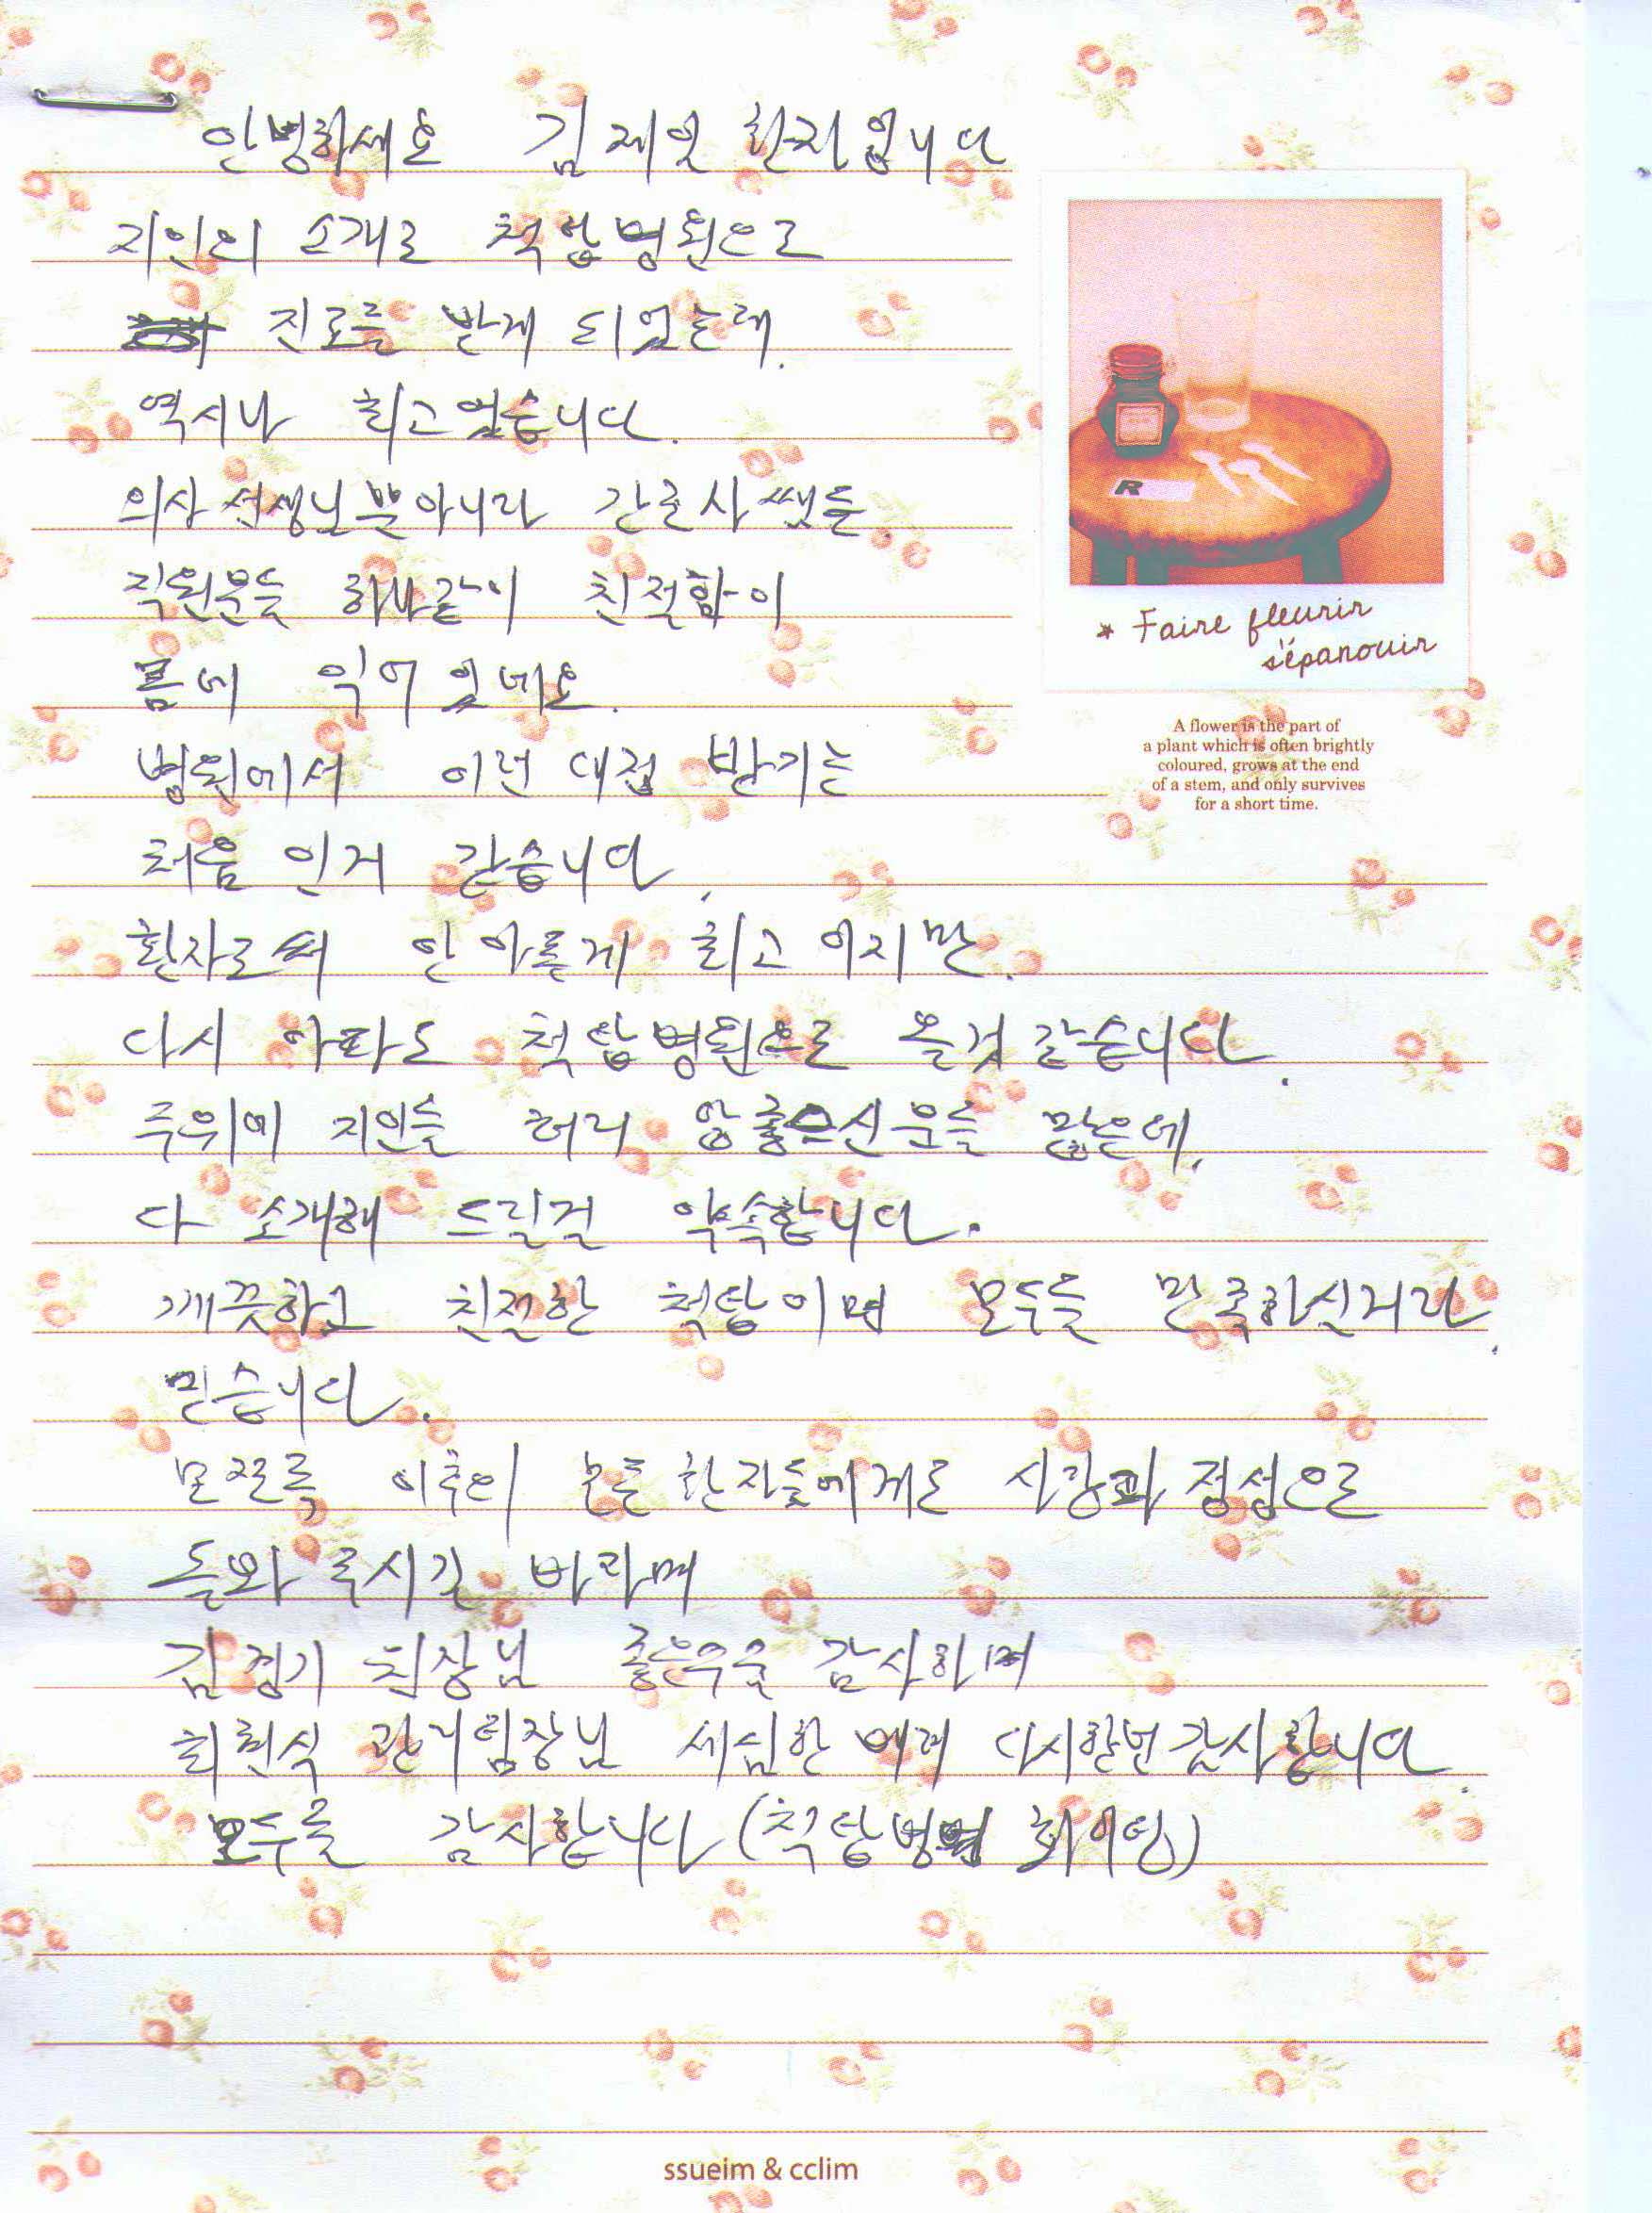 안녕하세요 김제일 환자입니다
지인의 소개로 척탑병원으로
진료를 받게 되었는데.
역시나 최고였습니다.
의사선생님뿐아니라 간호사쌤들
직원분들 하나같이 친절함이
몸에 익어있네요.
병원에서 이런 대접 받기는
처음 인거 같습니다.
환자로써 안아픈게 최고이지만.
다시 아파도 척탑병원으로 올것같습니다.
주위에 지인들 허리 안좋으신분들 많은데,
다 소개해 드릴걸 약속합니다.
깨끗하고 친절한 척탑이면 모두들 만족하실거라
믿습니다.
모쪼록 이후에 모든환자들에게로 사랑과 정성으로
돌봐주시길 바라며
김경기 원장님 좋은수술 감사하며
최현식 관리팀장님 세심한 배려 다시한번감사합니다.
모두들 감사합니다(척탑병원 화이팅)
* Faire fleurir
s'épanouir
A flower is the part of
a plant which is often brightly
coloured, grows at the end
of a stem, and only survives
for a short time.
ssueim & cclim